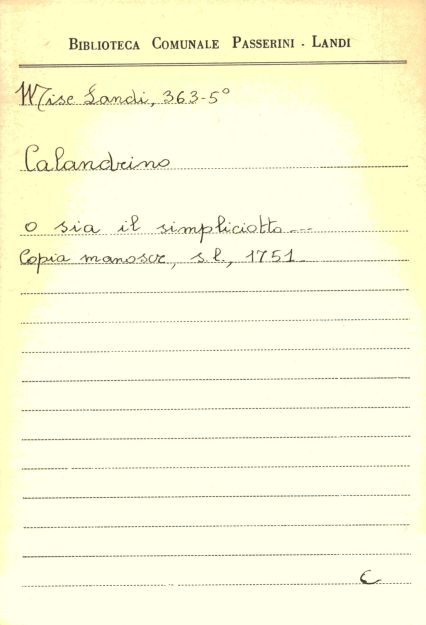 BIBLIOTECA COMUNALE PASSERINI - LANDI
Misc Landi, 363-5°
Calandrino
o sia il simpliciotto ---
Copia manoscr, s.l., 1751.
C